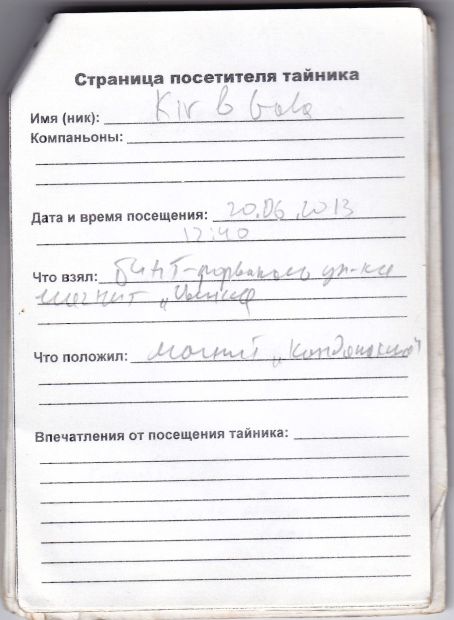 Страница посетителя тайника
Имя (ник): Kir
Компаньоны:
Дата и время посещения: 20.06.2013
12:40
Что взял: бинт-порвалась уп-ка
магнит
Что положил: магнит "Кондопога"
Впечатления от посещения тайника: